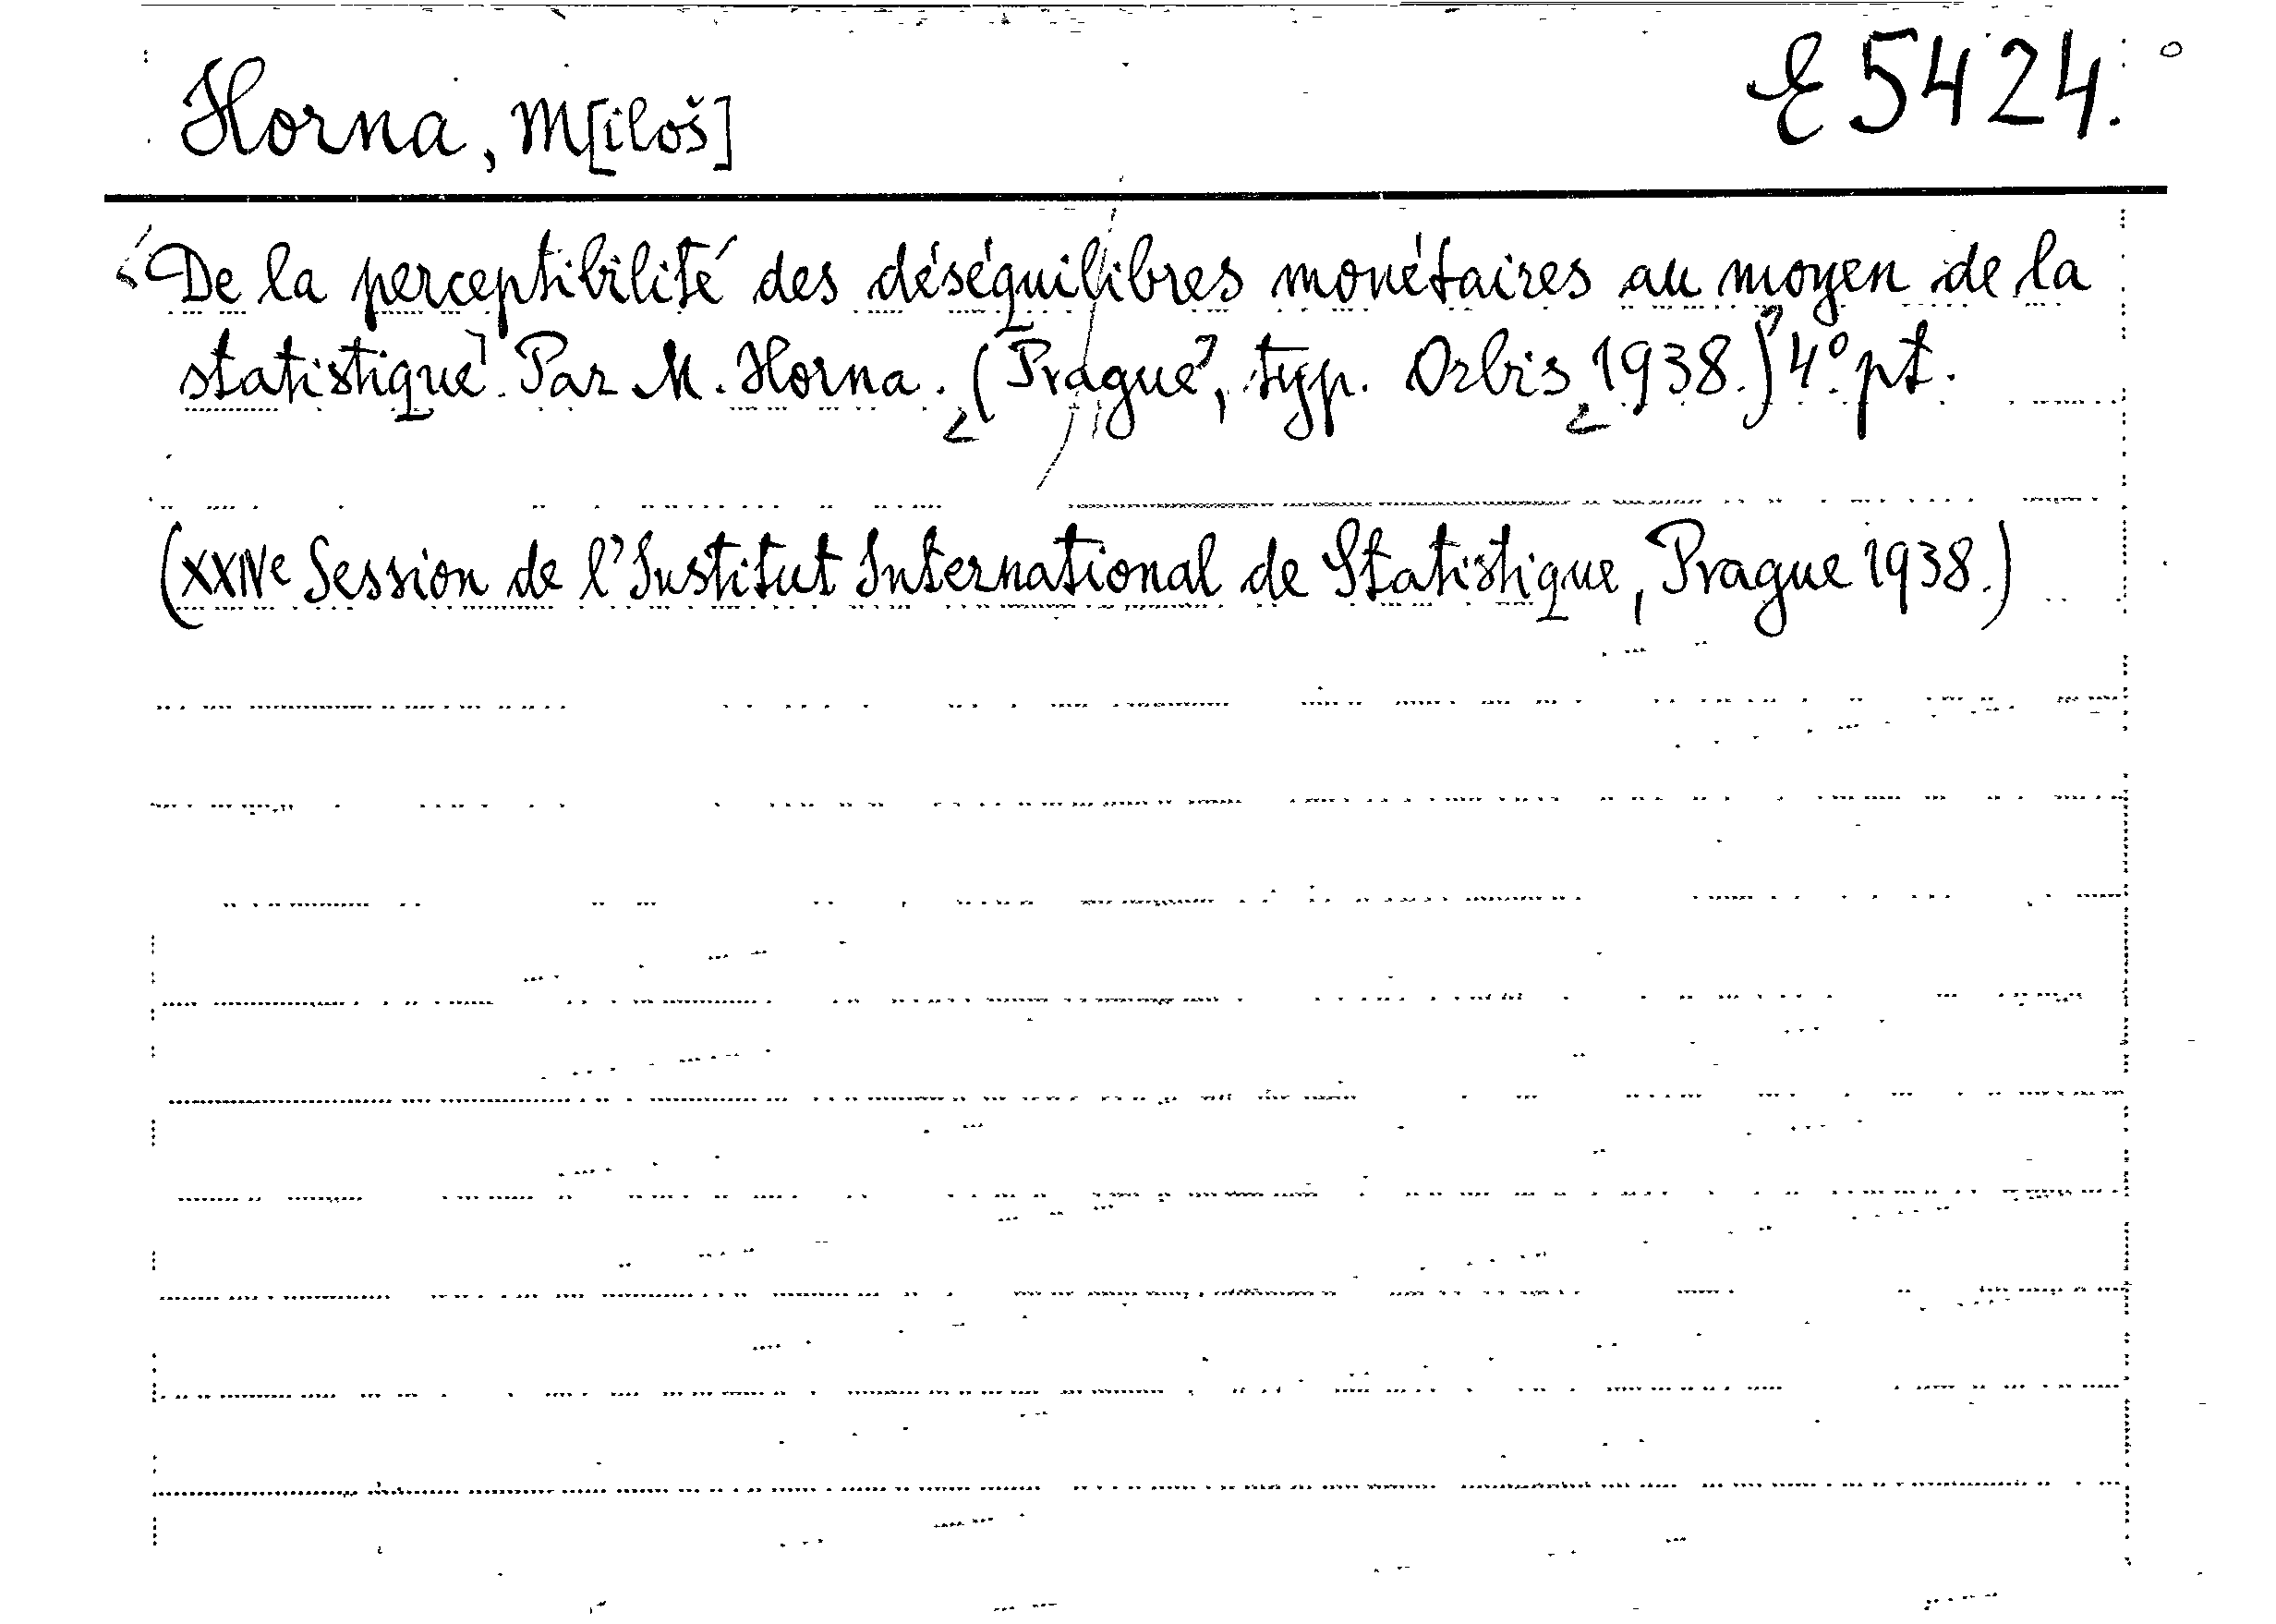 Horna, M[iloš]
E 5424.
De la perceptibilité des déséquilibres monétaires au moyen de la
statistique. Par M. Horna. (Prague, typ. Orbis, 1938.) 4° pt.
(XXIVe Session de l'Institut International de Statistique, Prague 1938.)